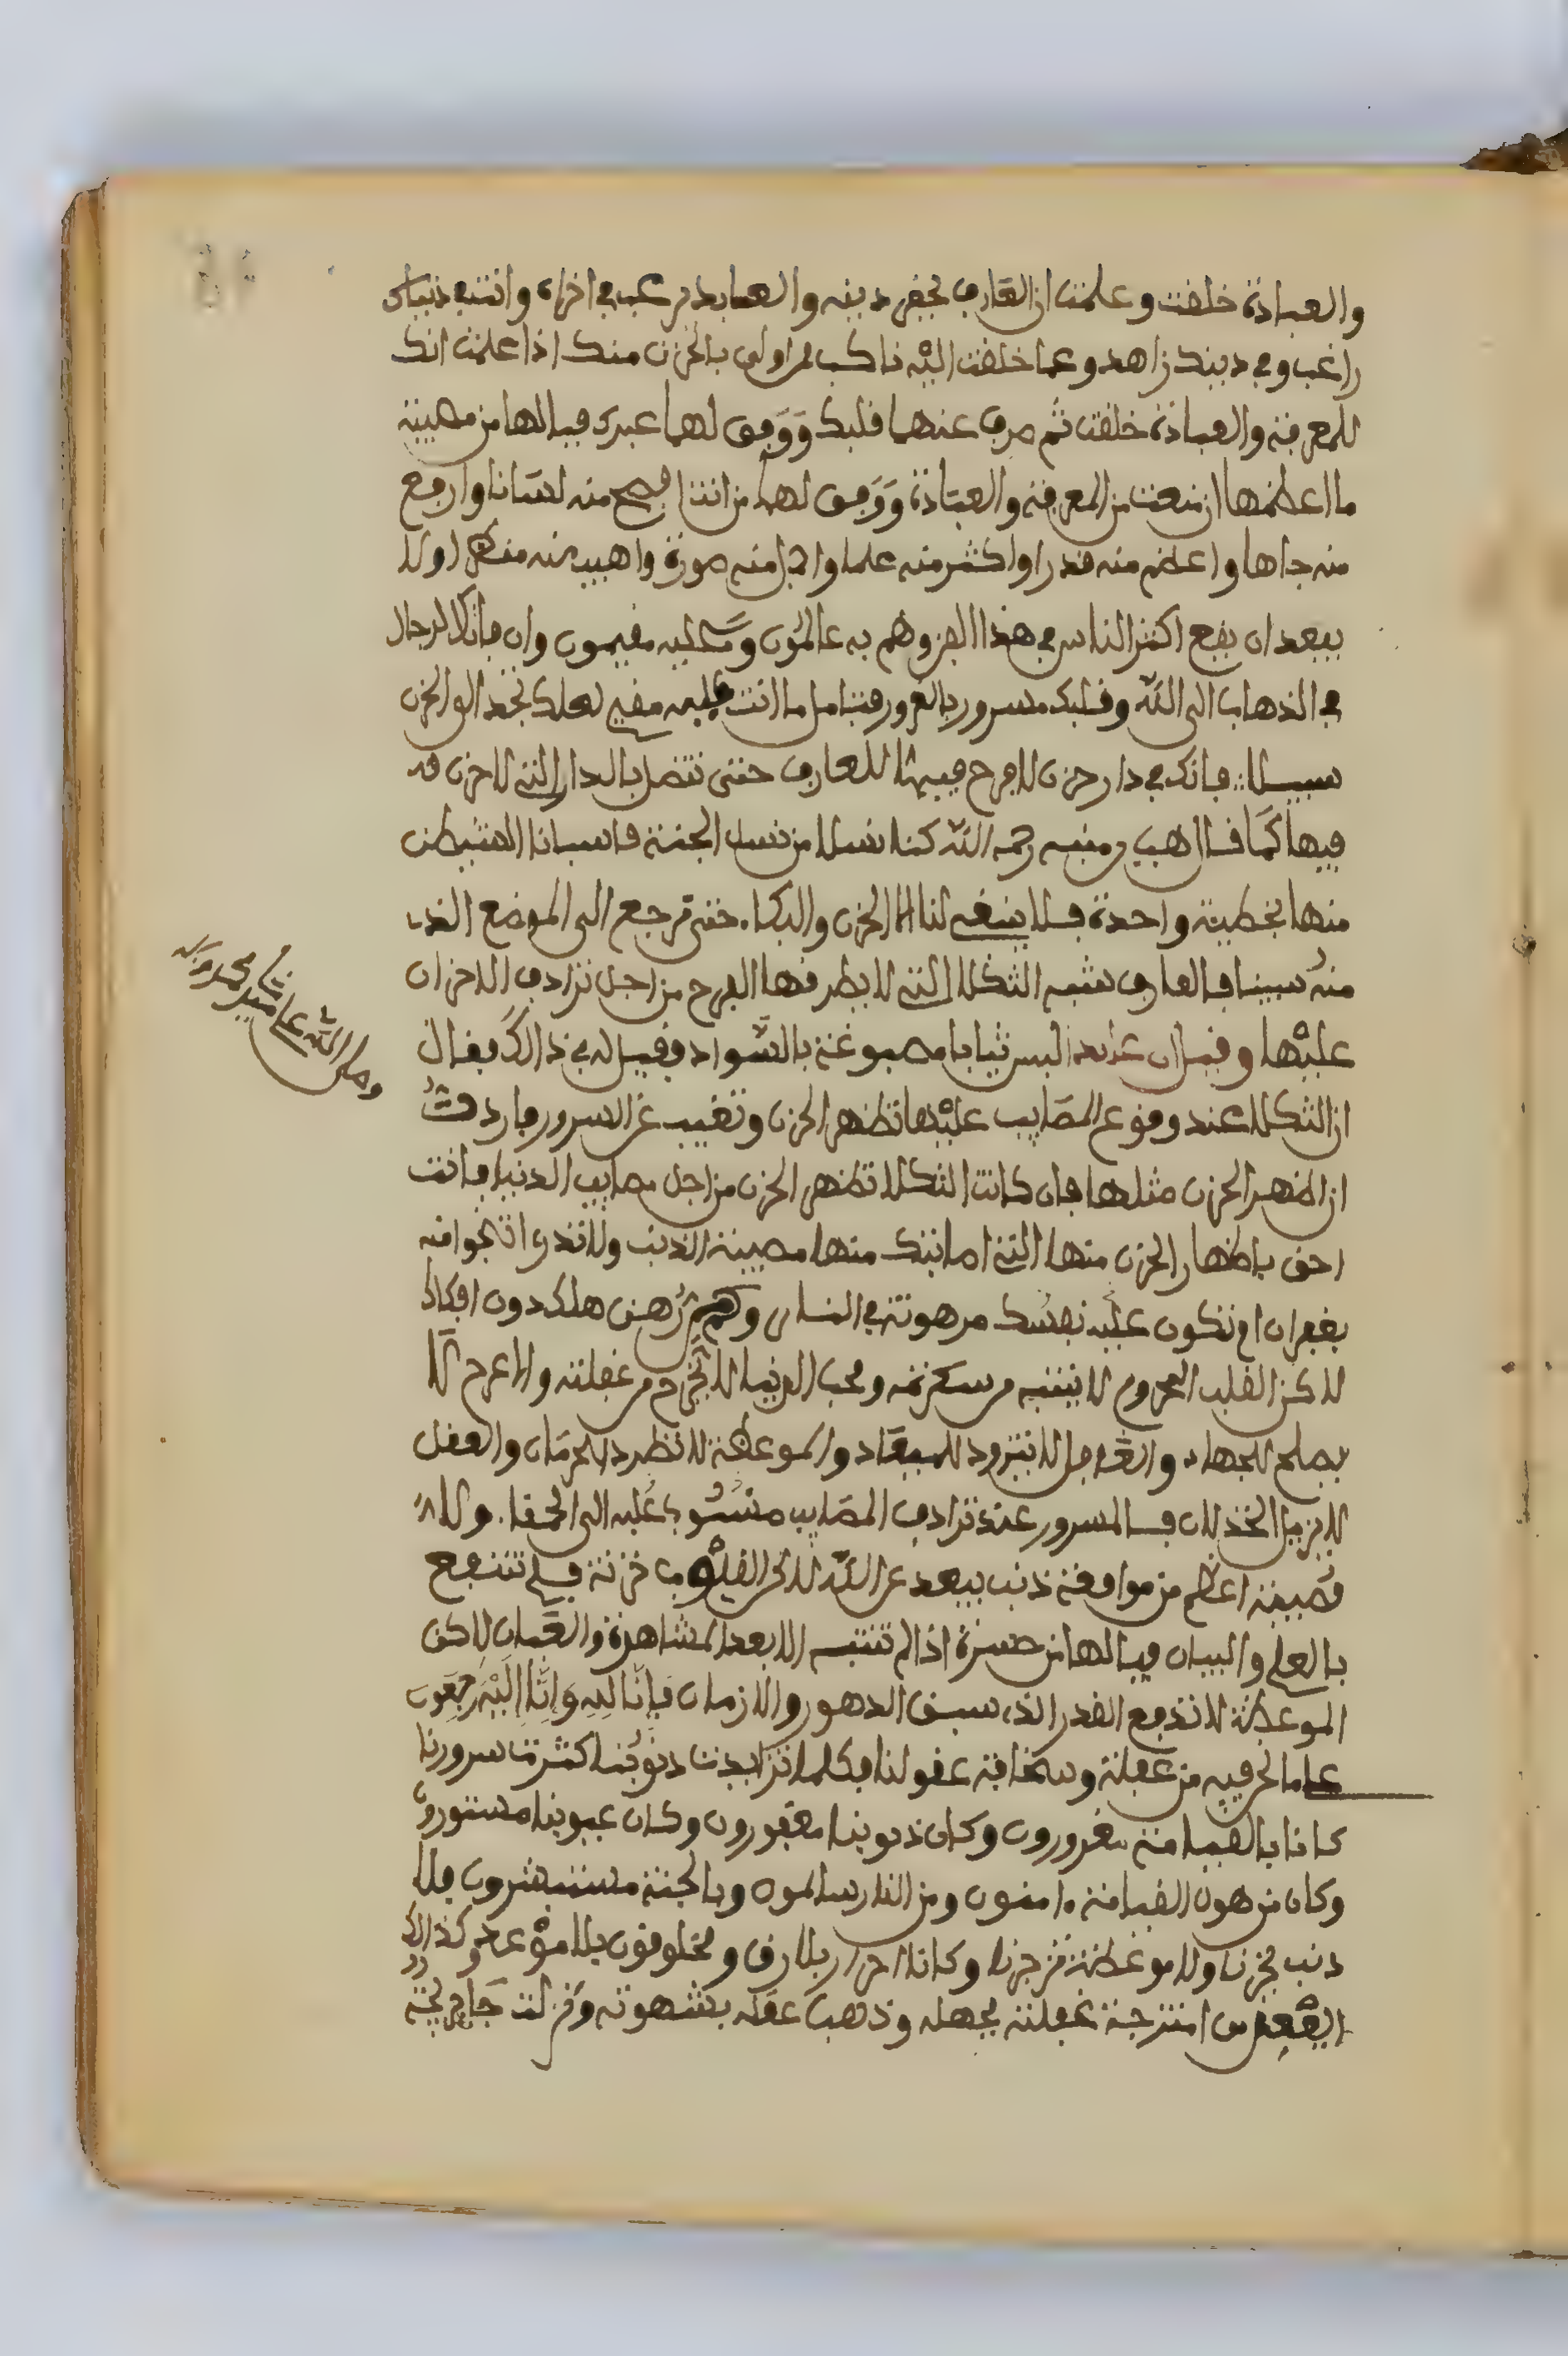 والعبادة خلقت وعلمت ان العارف يحفر دينه والعابد يرغب في اخراه وانت في دنياك
راغب وفي دينك زاهد وعما خلقت اليه ناكب فمن اولى بالحزن منك اذا علمت انك
للمعرفة والعبادة خلقت ثم صرف عنهما قلبك ووفق لهما غيرك فيا لها من مصيبة
ما اعظمها ان منعت من المعرفة والعبادة ووفق لهما من انت افصح منه لسانا وارفع
منه جاها واعظم منه قدرا واكثر منه علما واجل منه صورة واهيب منه منظرا ولا
يبعد ان يقع اكثر الناس في هذا الفن وهم به عالمون وعليه مقيمون وان فاتك الرجال
في الذهاب الى الله وقلبك مسرور بالغرور فتامل ما انت عليه مقيم لعلك تجد الى الحزن
سبيلا فانك في دار حزن لا فرح فيها للعارف حتى تتصل بالدار التي لا حزن
فيها كما قال وهب بن منبه رحمه الله كنا نسلا من نسل الجنة فاسبانا الشيطن
منها بخطيئة واحدة فلا ينبغي لنا الا الحزن والبكاء حتى نرجع الى الموضع الذي
منه سبينا فالعارف شبه الثكلا التي لا يطرقها الفرح من اجل ترادف الاحزان
عليها وقيل ان عابدا لبس ثيابا مصبوغة بالسواد وقيل له في ذالك فقال
ان الثكلا عند وقوع المصايب عليها تظهر الحزن وتغيب عن السرور فاردت
ان اظهر الحزن مثلها فان كانت الثكلا تظهر الحزن من اجل مصايب الدنيا فانت
احق باظهار الحزن منها التي اصابتك منها مصيبة الذنب ولا تدري اتنجوا منه
بغفران ام تكون عليه نفسك مرهونة في النار وكم من رهن هلك دون افكاك
لاكن القلب المحروم لا ينتبه من سكرته ومحب الدنيا لا يخرج من غفلته والاعرج لا
يصلح للجهاد والغافل لا يتزود للميعاد والموعظة لا تطرد الحرمان والعقل
لا يزيل الخذلان فالمسرور عند ترادف المصايب منسوب عليه الى الحمقا ولا
مصيبة اعظم من موافقة ذنب يبعد عن الله لاكن القلوب خزنة فلم تنتفع
بالعلم والبيان فيا لها من حسرة اذا لم تنتبه الا بعد المشاهدة والعيان لاكن
الموعظة لا تدفع القدر الذي سبق الدهور والازمان فانا لله وانا اليه رجعون
على ما نحن فيه من غفلة وسخافة عقولنا فكلما تزايدت ذنوبنا كثرت سرورنا
كاننا بالقيامة مغرورون وكان ذنوبنا مغفورون وكان عيوبنا مستورون
وكان من هول القيامة ءامنون ومن النار سالمون وبالجنة مستبشرون فلا
ذنب يحزننا ولا موعظة تزجرنا وكاننا احرار بلا رق ومخلوقون بلا موعد وكذالك
امتزجت غفلته بجهله وذهب عقله بشهوته
وصلى الله على سيدنا محمد وءاله